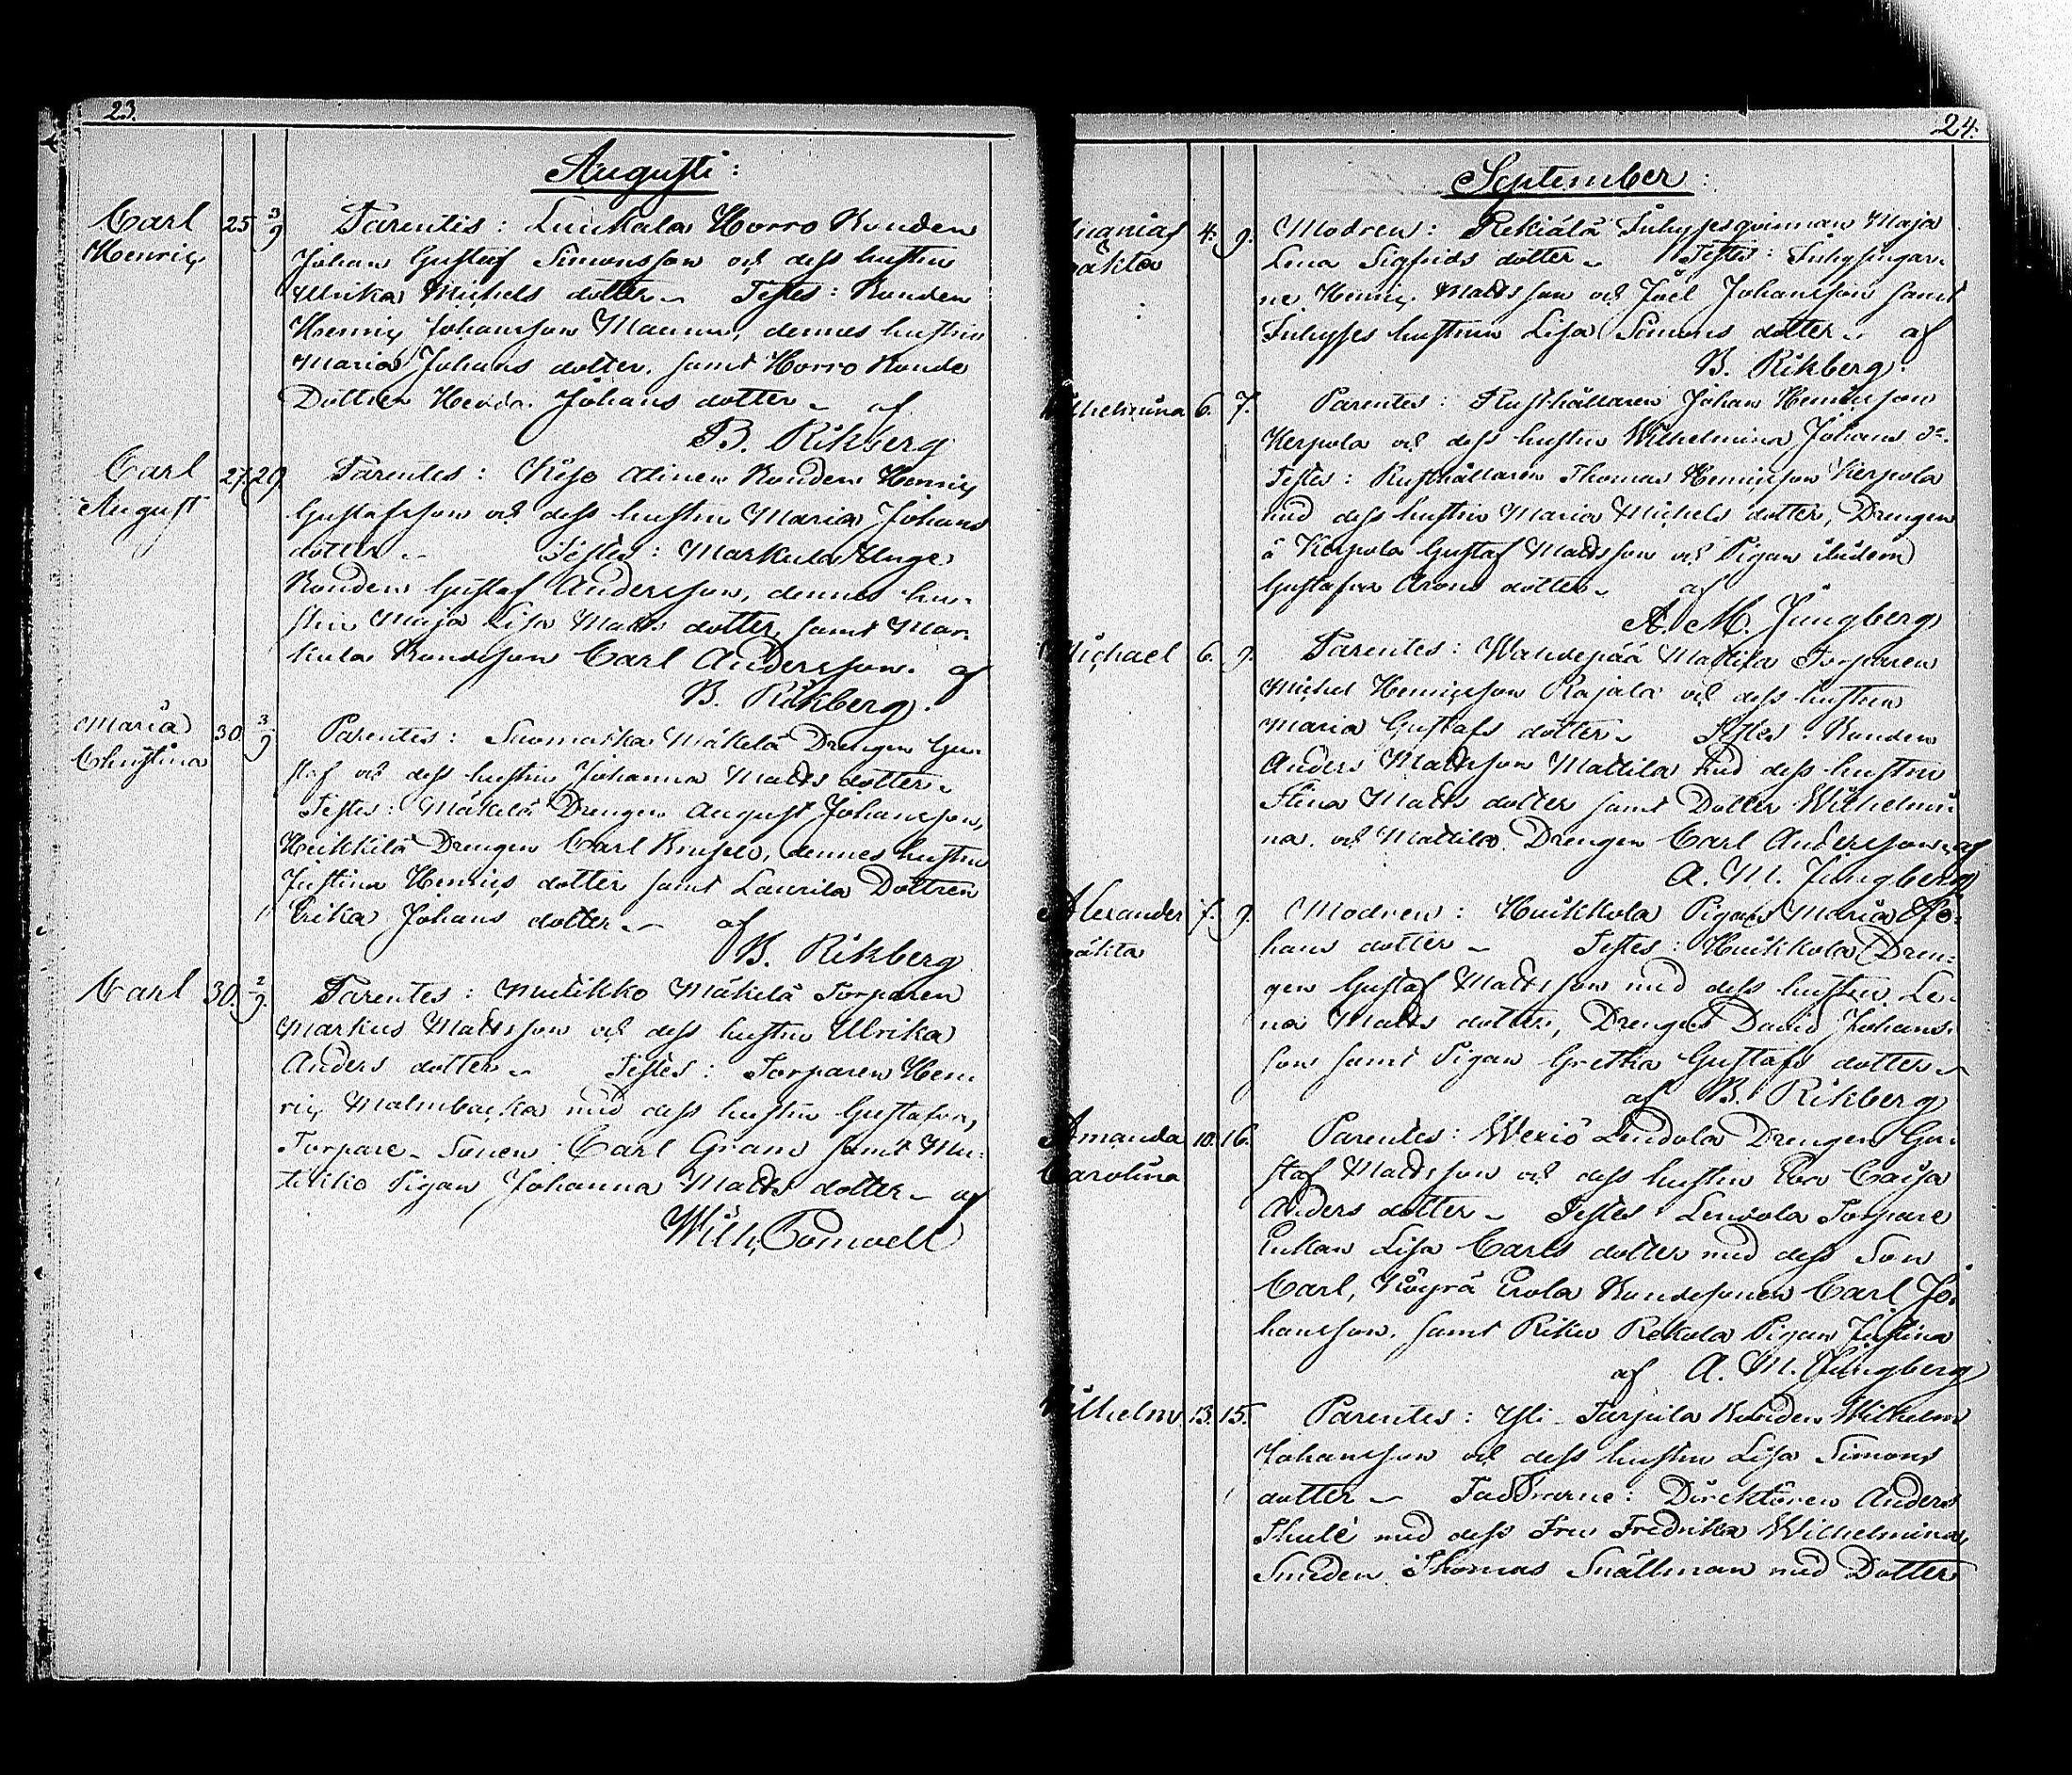 23.
Augusti:
Carl Henric 25 3/9 Parentes: Luukala Horro Bonden
Johan Gustaf Simonsson och dess hustru
Ulrika Michels dotter. Testes: Bonden
Henric Johansson Maunu, dennes hustru
Maria Johans dotter, samt Horro Bonde
Dottren Hedda Johans dotter. af
B. Rikberg
Carl August 27. 29 Parentes: Alinen Bonden Henric
Gustafsson och dess hustru Maria Johans
dotter. Testes: Markula Unge
Bonden Gustaf Andersson, dennes hu-
stru Maja Lisa Matts dotter, samt Mar-
kula Bondeson Carl Andersson. af
B. Rikberg.
Maria Christina 30 3/9 Parentes: Mäkelä Drengen Gu-
staf och dess hustru Johanna Matts dotter.
Testes: Mäkelä Drengen August Johansson,
Heikkilä Drengen Carl, dennes hustru
Justina Henrics dotter samt Laurila Dottren
Erika Johans dotter. af
B. Rikberg
Carl 30. 2/9. Parentes: Mutikko Mäkelä Torparen
Markus Mattsson och dess hustru Ulrika
Anders dotter. Testes: Torparen Hen-
ric Malmbacka med dess hustru Gustafva,
Torpare-Sonen Carl Gran samt Mu-
tikko Pigan Johanna Matts dotter. af
Wilh. Polviander
24.
September:
4. 9. Modren: Rekiälä Inhysesqvinnan Maja
Lena Sigfrids dotter. Testes: Inhysingar-
ne Henric Mattsson och Joel Johansson samt
Inhyses hustrun Lisa Simons dotter. af
B. Rikberg.
Wilhelmina 6. 7. Parentes: Rusthållaren Johan Henricsson
Kerpola och dess hustru Wilhelmina Johans dr.
Testes: Rusthållaren Thomas Henricsson Kerpola
med dess hustru Maria Michels dotter, Drengen
å Kerpola Gustaf Mattsson och Pigan ibidem
Gustafva Arons dotter. af
A. M. Jungberg
Michael 6. 9. Parentes: Wahdepää Mattila Torparen
Michel Henricsson Rajala och dess hustru
Maria Gustafs dotter. Testes: Bonden
Anders Mattsson Mattila med dess hustru
Stina Matts dotter samt Dotter Wilhelmi-
na och Mattila Drengen Carl Andersson. af
A. M. Jungberg
Alexander oäkta 7. 9. Modren: Huikkola Pigan Maria Jo-
hans dotter. Testes: Huikkola Dren-
gen Gustaf Mattsson med dess hustru Le-
na Matts dotter, Drengen David Johans-
son samt Pigan Gretha Gustafs dotter.
af B. Rikberg
Amanda Carolina 10. 16. Parentes: Wexiö Lendola Drengen Gu-
staf Mattsson och dess hustru Eva Caisa
Anders dotter. Testes: Lendola Torpare
Enkan Lisa Carls dotter med dess Son
Carl, Köyrä Erola Bondesonen Carl Jo-
hansson, samt Riku Rekola Pigan Justina
af A. M. Jungberg
Wilhelm 13. 15. Parentes: Yli Bonden Wilhelm
Johansson och dess hustru Lisa Simons
dotter. Faddrarne: Direktören Anders
Thulé med dess Fru Fredrika Wilhelmina,
Smeden Thomas Snällman med Dotter